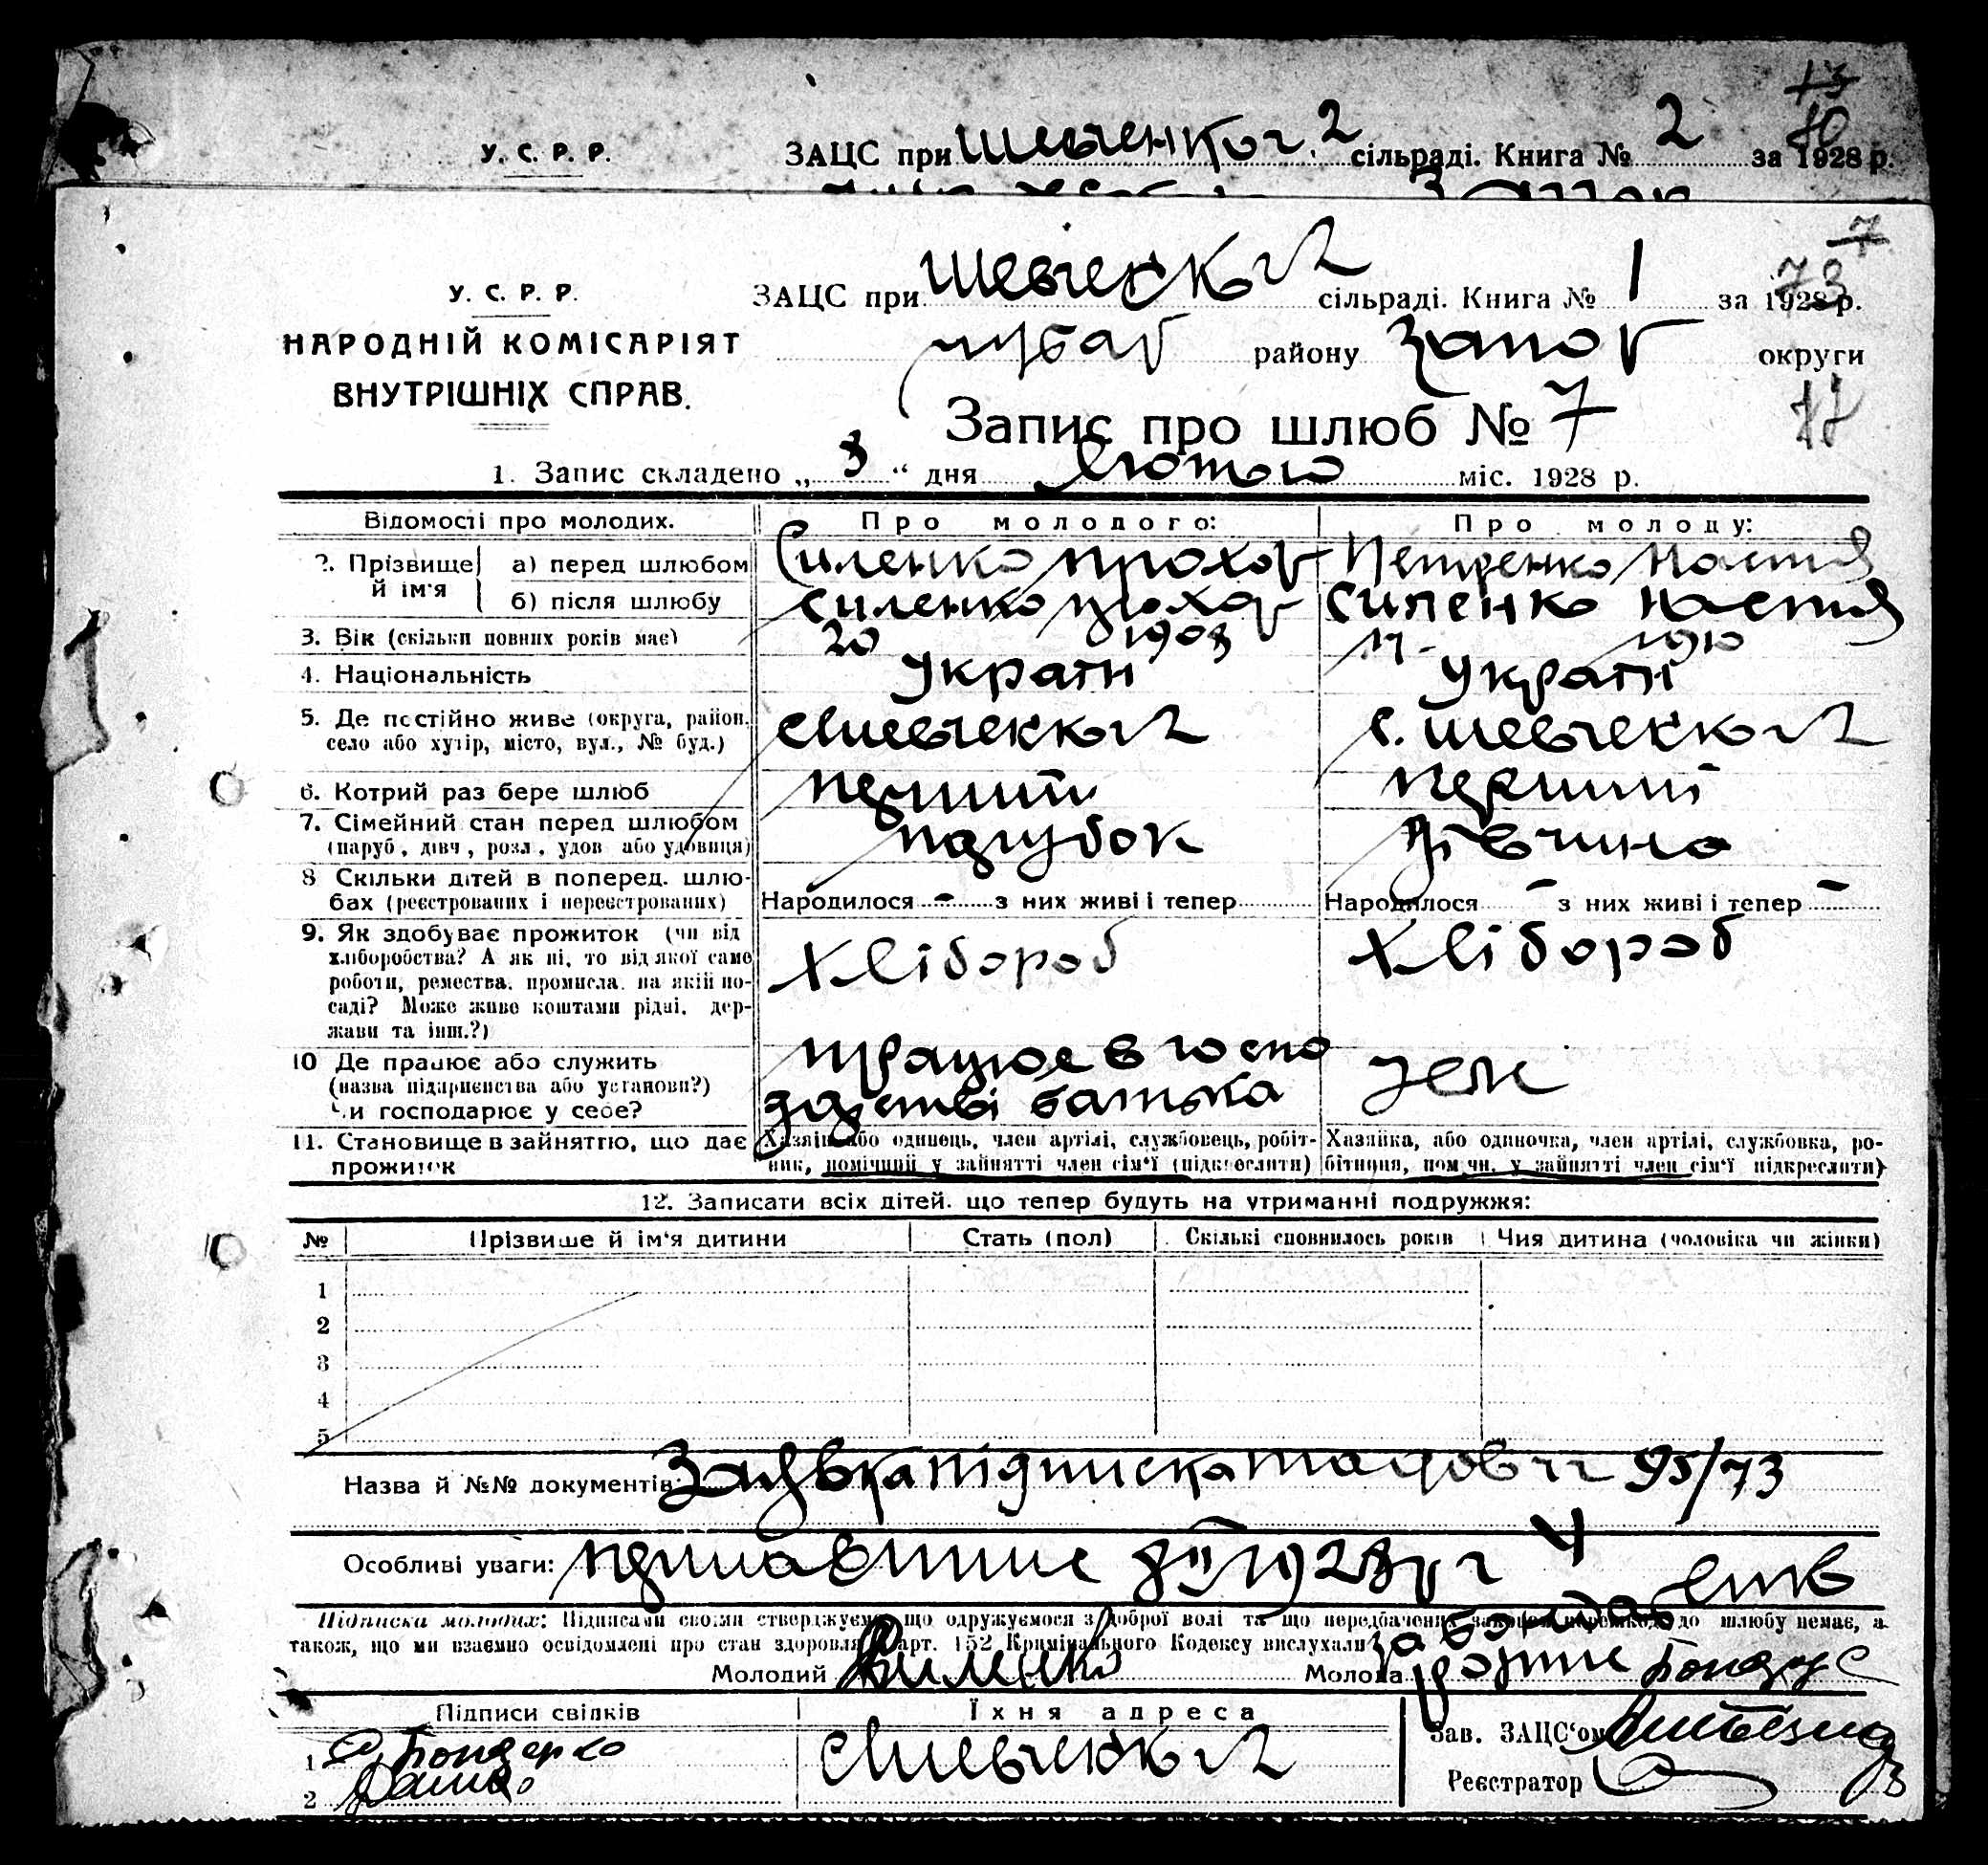 13
10
У. С. Р. Р. ЗАЦС при Шевченког. 2 сільраді. Книга № 2 за 1928 р.
7
73
У. С. Р. Р. ЗАЦС при Шевченког 2 сільраді. Книга № 1 за 1928 р.
НАРОДНІЙ КОМІСАРІЯТ
району Запор округи
ВНУТРІШНІХ СПРАВ.
Запис про шлюб № 7
1. Запис складено „ 3 “ дня Лютого міс. 1928 р.
Відомості про молодих. Про молодого: Про молоду:
2. Прізвище й ім'я а) перед шлюбом Силенко Прохор Петренко Настя
б) після шлюбу Силенко Прохор Силенко Настя
3. Вік (скільки повних років має) 20 1908 17 1910
4. Національність Україн Україн
5. Де постійно живе (округа, район, село або хутір, місто, вул., № буд.) с Шевченког 2 с. Шевченког 2
6. Котрий раз бере шлюб перший перший
7. Сімейний стан перед шлюбом (паруб., дівч., розл., удов або удовиця) парубок дівчина
8 Скільки дітей в поперед. шлюбах (реєстрованих і нереєстрованих) Народилося - з них живі і тепер Народилося - з них живі і тепер -
9. Як здобуває прожиток (чи від хліборобства? А як ні, то від якої саме роботи, ремества, промисла, на якій посаді? Може живе коштами рідні, держави та інш.?) Хлібороб Хлібороб
10 Де працює або служить (назва підприємства або установи?) Чи господарює у себе? працює в господарстві батька
11. Становище в зайняттю, що дає прожиток Хазяїн або одинець, член артілі, службовець, робітник, помічний у зайнятті член сім'ї (підкреслити) Хазяйка, або одиночка, член артілі, службовка, робітниця, помічн. у зайнятті член сім'ї підкреслити)
12. Записати всіх дітей, що тепер будуть на утриманні подружжя:
№ Прізвище й ім'я дитини Стать (пол) Скількі сповнилось років Чия дитина (чоловіка чи жінки)
1
2
3
4
5
Назва й №№ документів: Заявка підписка та довг 95/73
Особливі уваги:
Підписка молодих: Підписами своїми стверджуємо, що одружуємося з доброї волі та що передбачених законом перешкод до шлюбу немає, а
також, що ми взаємно освідомлені про стан здоровля арт. 152 Кримінального Кодексу вислухали
Молодий Силенко Молода
Підписи свідків Їхня адреса
Зав. ЗАЦС'ом
1 Бондарко с Шевченког 2
2
Реєстратор